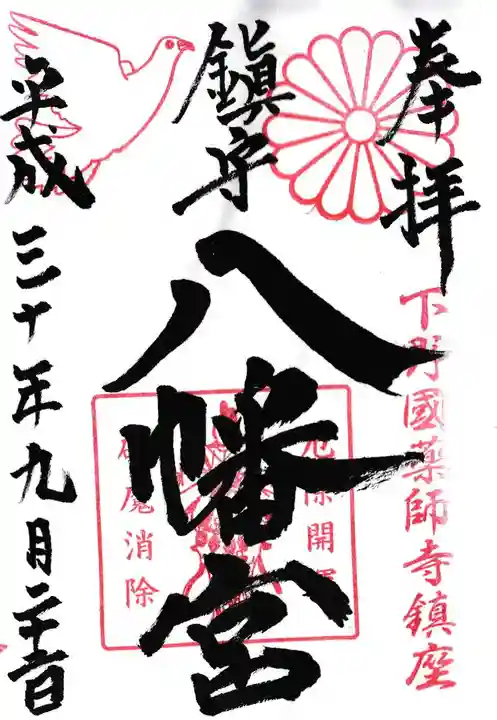 奉拝
下野國薬師寺鎮座
鎭守
八幡宮
厄除開運
魔消除
平成三十年九月二十日